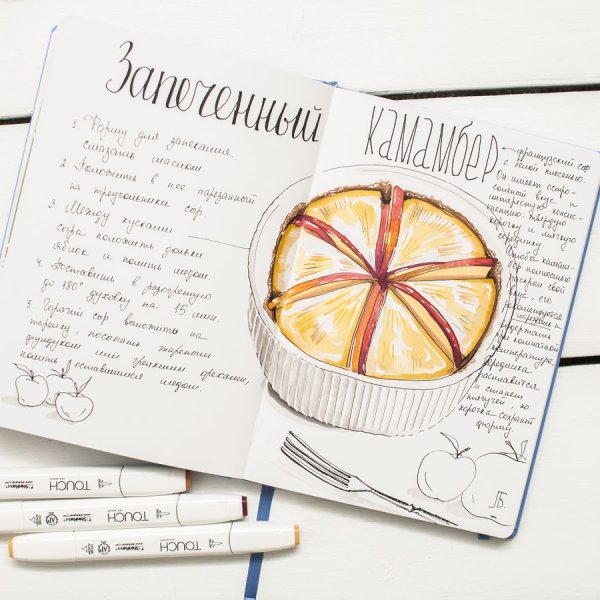 Запеченный
1. Форму для запекания
смазать маслом.
2. Положить в нее нарезанный
на треугольники сыр.
3. Между кусками
сыра положить дольки
яблок и полить медом.
4. Поставить в разогретую
до 180° духовку на 15 мин.
5. Горячий сыр выложить на
тарелку, посыпать тертым
фундуком или грецкими орехами,
полить оставшимся медом.
камамбер
французский сыр
с белой плесенью.
Он имеет остро-
соленый вкус и
интересную консис-
тенцию: твердую
корочку и мягкую
середину.
Чтобы камам-
бер полностью
раскрыл свой
вкус, его
рекомендуется
нарезать и
подержать
при комнатной
температуре.
Серединка
расплавится
и станет
тягучей, но
корочка сохранит
форму.
TOUCH
TOUCH
TOUCH